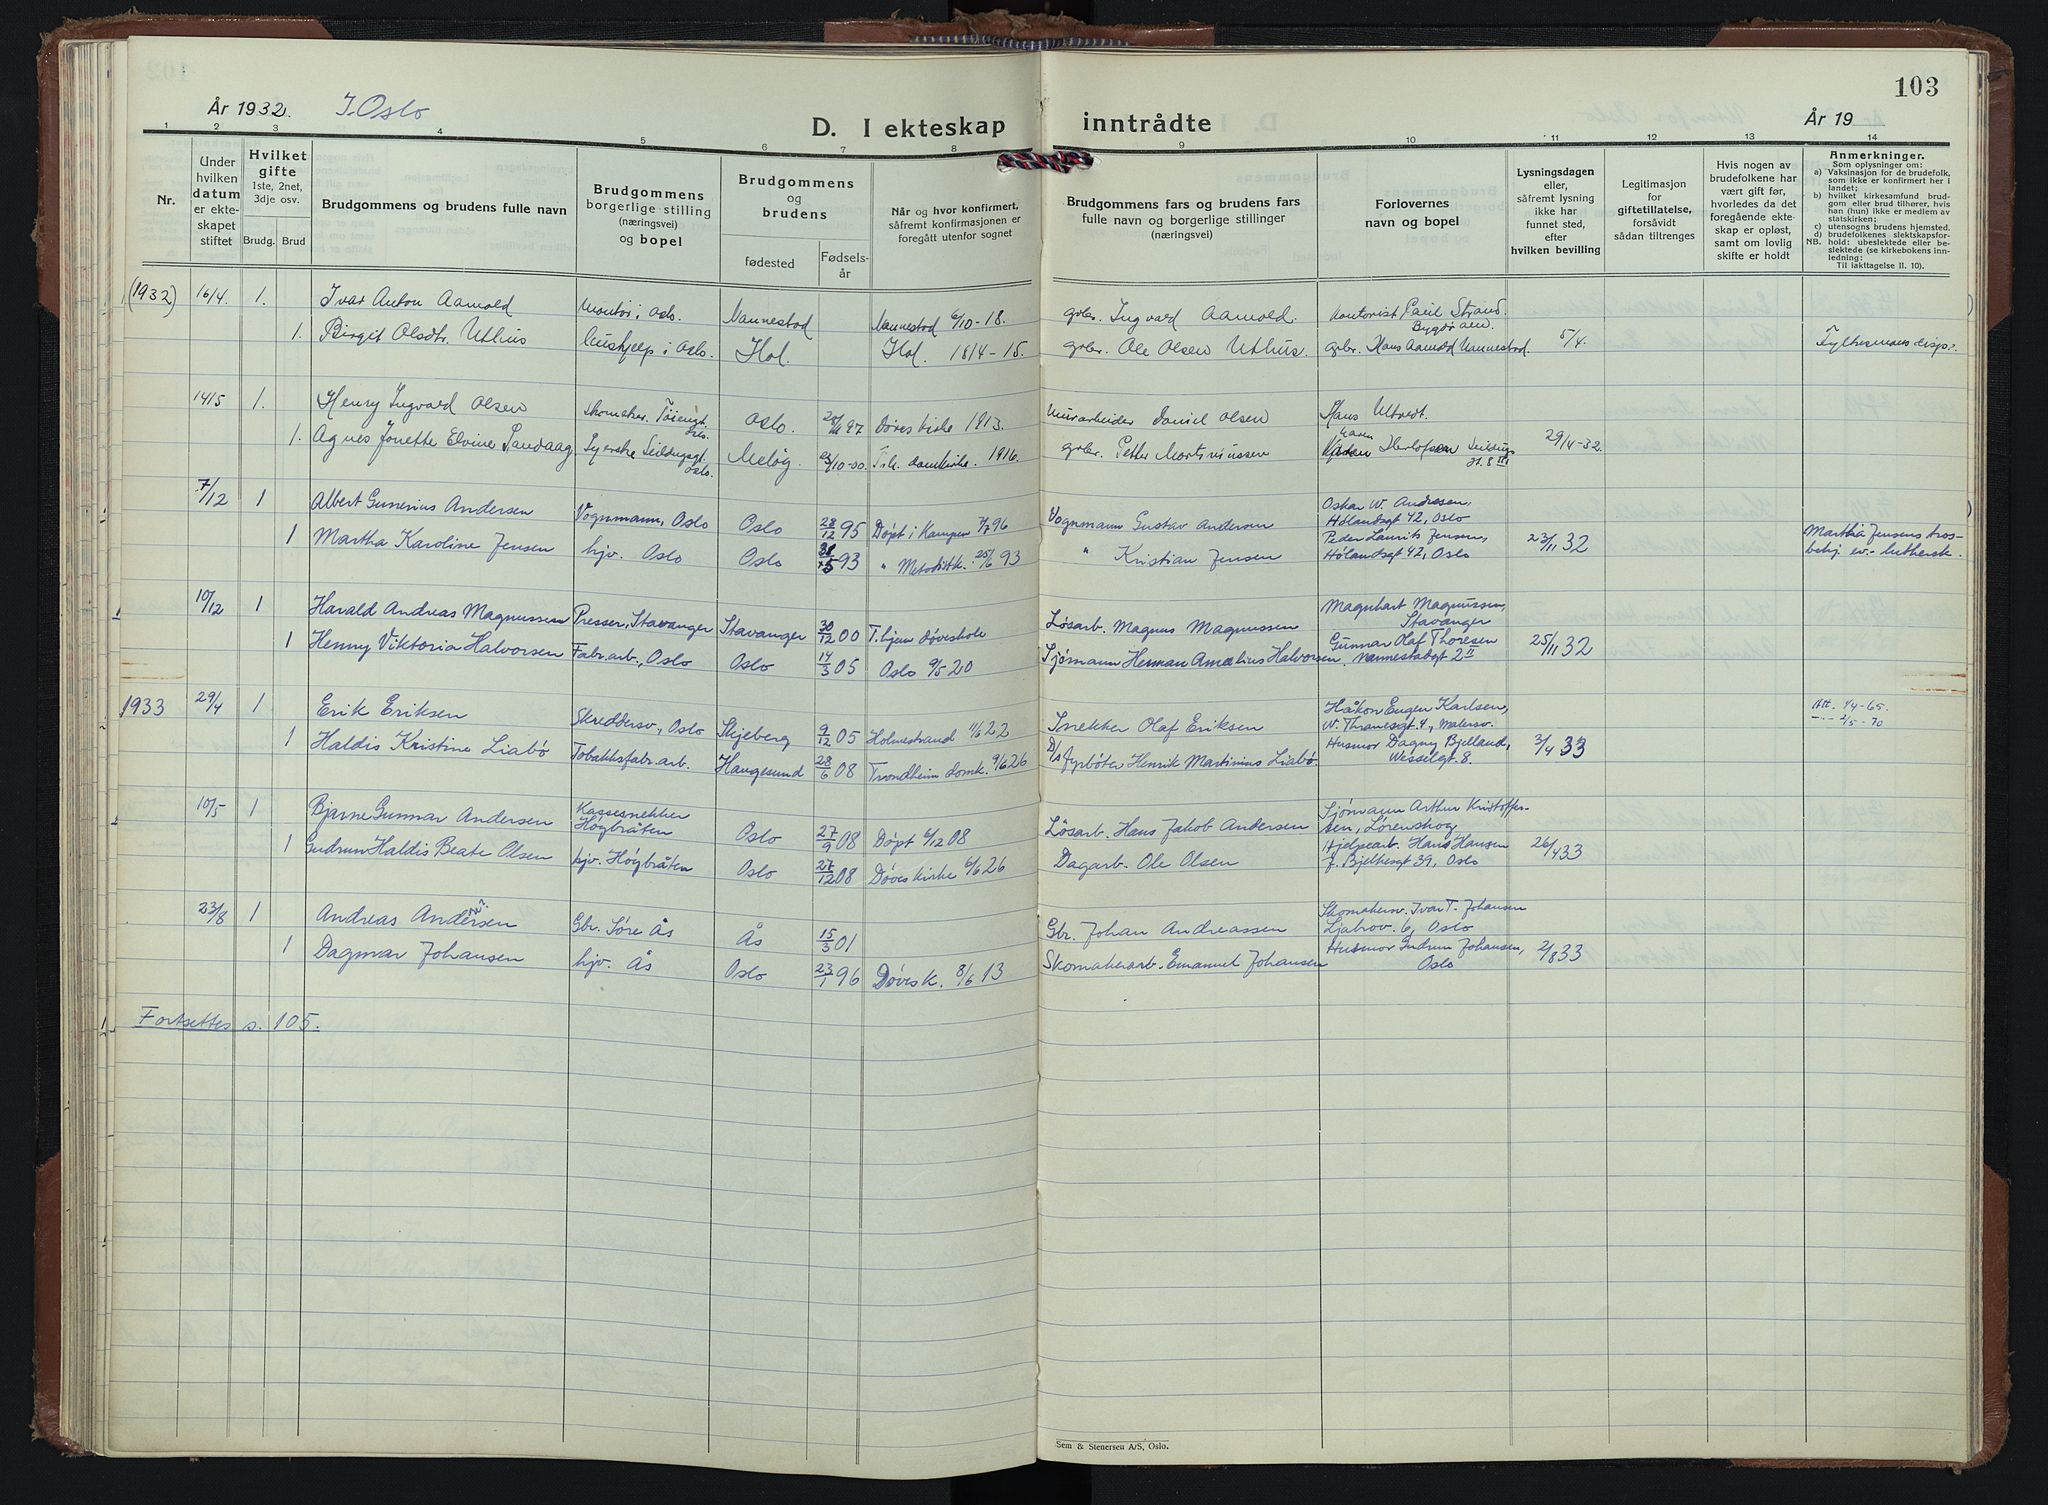 103
År 1932. I Oslo
D. I ekteskap inntrådte
År 19
1 2 3 4 5 6 7 8 9 10 11 12 13 14
Nr.
Under hvilken datum er ekteskapet stiftet
Hvilket gifte
1ste, 2net, 3dje osv.
Brudg. Brud
Brudgommens og brudens fulle navn
Brudgommens borgerlige stilling (næringsvei) og bopel
Brudgommens og brudens
fødested
Fødselsår
Når og hvor konfirmert, såfremt konfirmasjonen er foregått utenfor sognet
Brudgommens fars og brudens fars fulle navn og borgerlige stillinger (næringsvei)
Forlovernes navn og bopel
Lysningsdagen eller, såfremt lysning ikke har funnet sted, efter hvilken bevilling
Legitimasjon for giftetillatelse, forsåvidt sådan tiltrenges
Hvis nogen av brudefolkene har vært gift før, hvorledes da det foregående ekteskap er opløst, samt om lovlig skifte er holdt
Anmerkninger.
Som oplysninger om:
a) Vaksinasjon for de brudefolk, som ikke er konfirmert her i landet;
b) hvilket kirkesamfund brudgom eller brud tilhører, hvis han (hun) ikke er medlem av statskirken;
c) utensogns brudens hjemsted.
d) brudefolkenes slektskapsforhold: ubeslektede eller beslektede (se kirkebokens innledning:
NB. Til iakttagelse II. 10).
(1932) 16/4. 1. Ivar Anton Aamold Montør i Oslo. Nannestad Nannestad 6/10-18. grbr. Ingvard Aamold. Kontorist Paul Strand Bygdø alle.
1. Birgit Olsdtr. Uthus hushjelp i Oslo. Hol. Hol. 18/4-15. grbr. Ole Olsen Uthus. grbr. Hans Aamold Nannestad. 5/4. Fylkesmans disp.
14/5 1. Henry Ingvard Olsen Skomaker. Tøiengt. Oslo. Oslo. 97 Døves kirke 1913. Murarbeider Daniel Olsen Hans Utvedt.
1. Agnes Jonette Elvine Sandaag Syerske Seildugsgt. Oslo. Meløy. /10-00. domkirke. 1916. grbr. Petter Martinussen Karen Herlofsen Seildugs gt. 8 III 29/4-32.
7/12 1 Albert Gunerius Andersen Vognmann, Oslo Oslo 28/12 95 Døpt i Kampen 7/7 96 Vognmann Gustav Andersen Oskar W. Andresen, Hølandsgt 42, Oslo
1 Martha Karoline Jensen hjv. Oslo Oslo 31/5 93 " Metodistk. 25/6 93 " Kristian Jensen Peder Laurits Jensen, Hølandsgt 42, Oslo 23/11 32 Martha Jensens trosbekj ev.-luthersk.
10/12 1 Harald Andreas Magnussen Presser, Stavanger Stavanger 30/12 00 T.hjem døveskole Løsarb. Magnus Magnussen Magnhart Magnussen, Stavanger
1 Henny Viktoria Halvorsen Fabr.arb., Oslo Oslo 14/3 05 Oslo 9/5 20 Sjømann Herman Amalius Halvorsen Gunnar Olaf Thoresen Nannestadgt 2 II 25/11 32
1933 29/4 1 Erik Eriksen Skreddersv., Oslo Skjeberg 9/12 05 Holmestrand 11/6 22 Snekker Olaf Eriksen Håkon Eugen Karlsen, W. Thranesgt. 4, Malersv. Att. 1/4-65.
1 Haldis Kristine Liabø Tobakksfabr.arb. Haugesund 28/6 08 Trondheim domk. 9/6 26 D/s fyrbøter Henrik Martinius Liabø. Husmor Dagny Bjelland, Wesselgt. 8. 3/4 33 -"- 2/5-70
10/5 1 Bjarne Gunnar Andersen Kassesnekker Høybråten Oslo 27/9 08 Døpt 6/12 08 Løsarb. Hans Jakob Andersen Sjømann Arthur Kristoffersen, Lørenskog
1 Gudrun Haldis Beate Olsen hjv. Høybråten Oslo 27/12 08 Døves kirke 6/6 26 Dagarb. Ole Olsen Hjelpearb. Hans Hansen J. Bjelkesgt 39, Oslo 26/4 33
23/8 1 Andreas Andersen Gbr. Søre Ås Ås 15/3 01 Gbr. Johan Andreassen Skomakersv. Ivar T. Johansen Ljabrov. 6, Oslo
1 Dagmar Johansen hjv. Ås Oslo 23/1 96 Døvesk. 8/6 13 Skomakerarb. Emanuel Johansen Husmor Gudrun Johansen, Oslo 2/8 33
Fortsettes s. 105.
Sem & Stenersen A/S, Oslo.